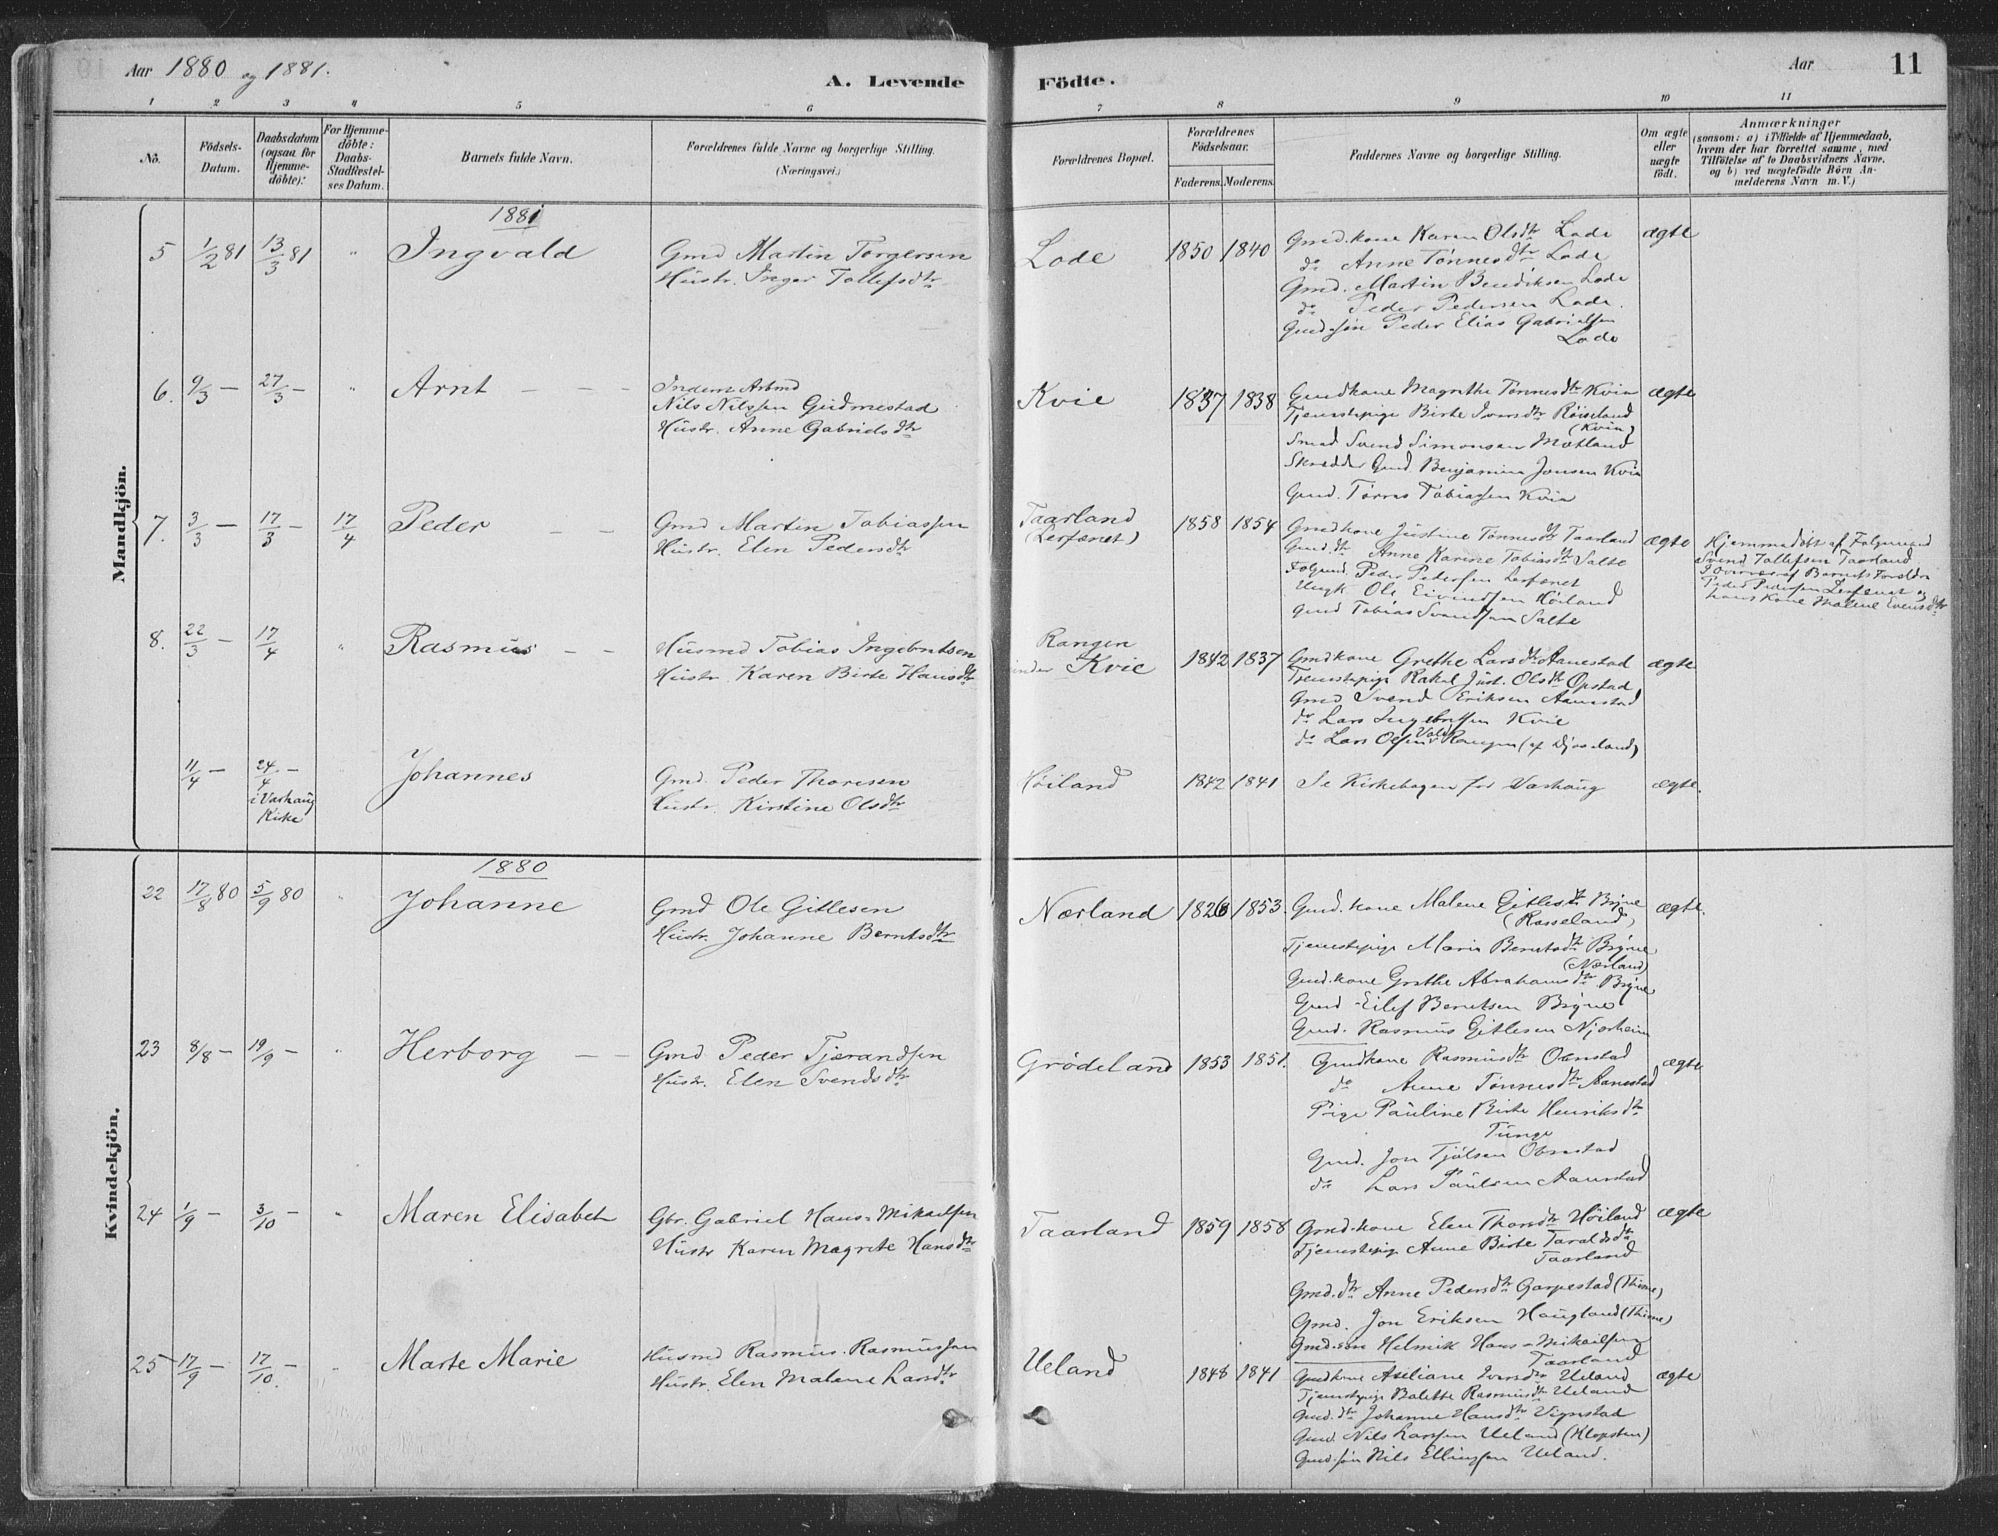 Aar 1880 og 1881.
A. Levende
Födte.
Aar
11
1 2 3 4 5 6 7 8 9 10 11
No.
Födsels-
Datum.
Daabsdatum
(ogsaa for
Hjemme-
döbte):
For Hjemme-
döbte:
Daabs-
Stadfæstel-
ses Datum.
Barnets fulde Navn.
Forældrenes fulde Navne og borgerlige Stilling.
(Næringsvei.)
Forældrenes Bopæl.
Forældrenes
Födselsaar.
Faderens. Moderens.
Faddernes Navne og borgerlige Stilling.
Om ægte
eller
uægte
födt.
Anmærkninger
(saasom: a) i Tilfælde af Hjemmedaab,
hvem der har forrettet samme, med
Tilföielse af to Daabsvidners Navne.
og b) ved uægtefödte Börn An-
melderens Navn m. V.)
Mandkjön.
1881
5 1/2 81 13/3 81 " Ingvald
Gmd Martin Torgersen
Hustr. Inger Tollefsdtr
Lode 1850 1840
Gmd.kone Karen Olsdtr Lode
do Anne Tønnesdtr Lode
Gmd. Martin Bendiksen Lode
do Peder Pedersen Lode.
Gmd.søn Peder Elias Gabrielsen
Lode
ægte
6. 9/3 — 27/3 — " Arnt — — —
Nils Nilssen Gudmestad
Hustr. Anne Gabrielsdtr
Kvie 1837 1838
Gmdkone Magrethe Tønnesdtr Kvia
Tjenestepige Birte Ivarsdtr Røiseland
(Kvia)
Smed Svend Simonsen Motland
Skrædder Gmd. Benjamin Jonsen Kvia
Gmd. Tørres Tobiassen Kvia
ægte
7. 3/3 — 17/3 — 17/4 Peder — —
Gmd Martin Tobiassen
Hustr. Elen Pedersdtr
Taarland
1858 1854
Gmdkone Justine Tønnesdtr Taarland
Gmd.dtr Anne Karine Tobiasdtr Salte
Folgmd. Peder Pedersen
Ungk Ole Eivindsen Høiland
Gmd Tobias Svendsen Salte
ægte
Hjemmedøbt af Folgemand
Svend Tollefsen Taarland
i Overvær af Barnets Forældre
Peder Pedersen og
hans Kone Malene
8. 22/3 — 17/4 " Rasmus — —
Husmd Tobias Ingebretsen
Hustr. Karen Birte Hansdtr
Rangen
under Kvie 1842 1837
Gmdkone Grethe Larsdtr Aanestad
Tjenestepige Rakel Just. Olsdtr Opstad
Gmd Svend Eriksen Aanestad
do Lars Ingebretsen Kvie
do Lars Olsen Rangen
ægte
11/4 — 24/4 —
i Varhaug
Kirke
Johannes
Gmd. Peder Thoresen
Hustr. Kirstine Olsdtr
Høiland 1842 1841 Se Kirkebogen for Varhaug ægte.
Kvindekjön.
1880
22 17/8 80 5/9 80 " Johanne
Gmd Ole Gitlesen
Hustr. Johanne Berntsdtr
Nærland 1826 1853.
Gmd.kone Malene Gitlesdtr Bryne
(Rosseland)
Tjenestepige Maria Berntsdtr Bryne
(Nærland)
Gmd.kone Grethe Abrahamsdtr Bryne
Gmd Eilef Berntsen Bryne
Gmd. Rasmus Gitlesen Njorheim
ægte.
23 8/8 — 19/9 — " Herborg — —
Gmd Peder Tjærandsen
Hustr. Elen Svendsdtr
Grødeland 1853 1851.
Gmdkone Rasmusdtr Obrestad
do Anne Tønnesdtr Aanestad
Pige Pauline Birte Henriksdtr
Tunge
Gmd. Jon Tjølsen Obrestad
do Lars Paulsen Aanestad
ægte
24 1/9 — 3/10 — " Maren Elisabet
Gbr. Gabriel Hans-Mikaelsen
Hustr Karen Magrete Hansdtr
Taarland 1859 1858
Gmd.kone Elen Thorsdtr Høiland
Tjenestepige Anne Birte Taraldsdtr
Taarland
Gmd.dtr Anne Pedersdtr Garpestad (Thime)
Gmd. Jon Eriksen Haugland (Thime)
Gmdsøn Helmik Hans-Mikaelsen
Taarland
ægte
25 17/9 — 17/10 — " Marte Marie
Husmd Rasmus Rasmussen
Hustr. Elen Malene Larsdtr
Ueland 1848 1841
Gmdkone Aseliane Ivarsdtr Ueland
Tjenestepige Bolette Rasmusdtr Ueland
Gmd.dtr Johanne Hansdtr Vignstad
Gmd. Nils Larssen Ueland (Klepsten)
Gmd.søn Nils Ellingsen Ueland.
ægte